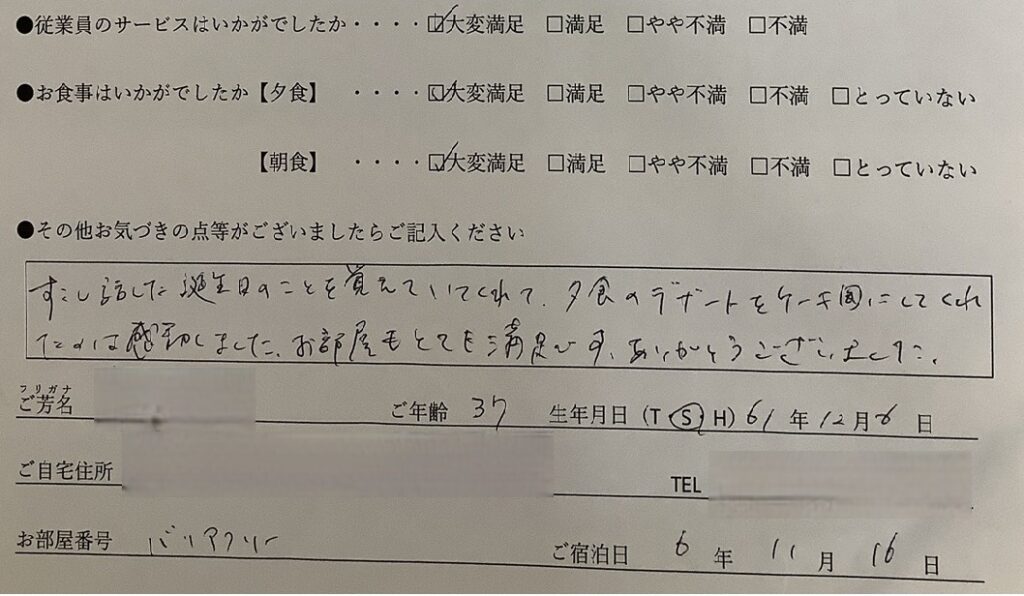 ●従業員のサービスはいかがでしたか・・・・☑大変満足 □満足 □やや不満 □不満
●お食事はいかがでしたか【夕食】 ・・・・☑大変満足 □満足 □やや不満 □不満 □とっていない
【朝食】 ・・・・☑大変満足 □満足 □やや不満 □不満 □とっていない
●その他お気づきの点等がございましたらご記入ください
すこし話した誕生日のことを覚えていてくれて、夕食のデザートをケーキ風にしてくれ
たのは感動しました。お部屋もとても満足です。ありがとうございました。
フリガナ
ご芳名 ご年齢 37 生年月日 (T S H) 61年12月6日
ご自宅住所 TEL
お部屋番号 バリアフリー ご宿泊日 6年 11月 16日